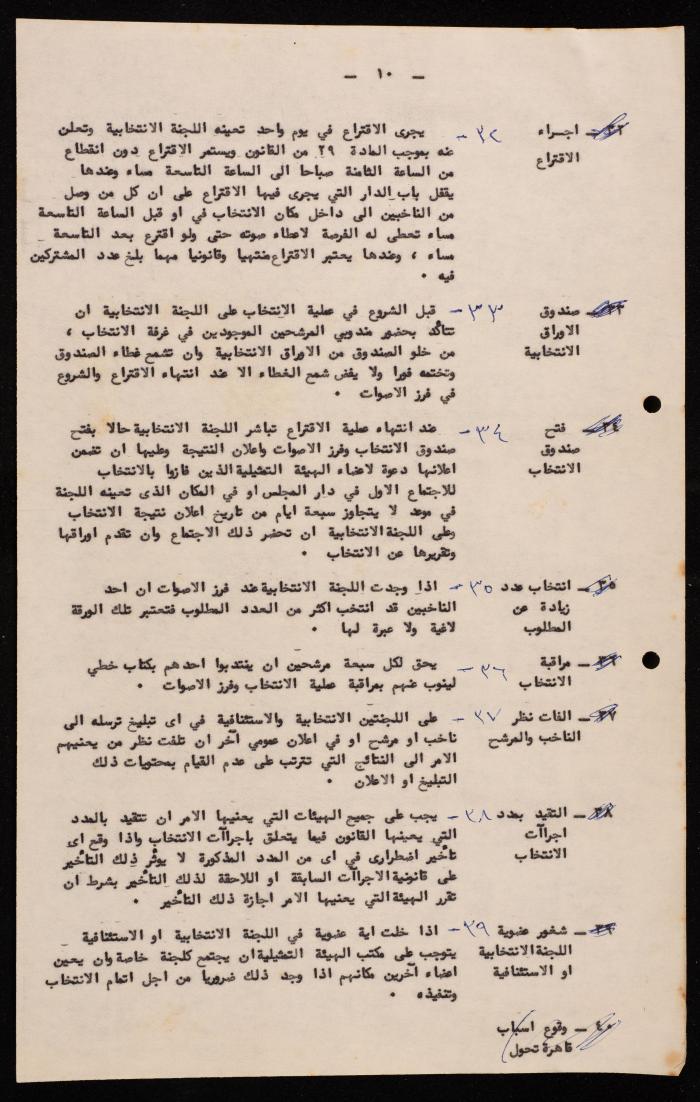 – ١٠ –
٣٢ – اجراء ٣٢ – يجرى الاقتراع في يوم واحد تعينه اللجنة الانتخابية وتعلن
الاقتراع عنه بموجب المادة ٢٩ من القانون ويستمر الاقتراع دون انقطاع
من الساعة الثامنة صباحا الى الساعة التاسعة مساء وعندها
يقفل باب الدار التي يجرى فيها الاقتراع على ان كل من وصل
من الناخبين الى داخل مكان الانتخاب في او قبل الساعة التاسعة
مساء تعطى له الفرصة لاعطاء صوته حتى ولو اقترع بعد التاسعة
مساء ، وعندها يعتبر الاقتراع منتهيا وقانونيا مهما بلغ عدد المشتركين
فيه ٠
٣٣ – صندوق ٣٣ – قبل الشروع في عملية الانتخاب على اللجنة الانتخابية ان
الاوراق تتأكد بحضور مندوبي المرشحين الموجودين في غرفة الانتخاب ،
الانتخابية من خلو الصندوق من الاوراق الانتخابية وان تشمع غطاء الصندوق
وتختمه فورا ولا يفض شمع الغطاء الا عند انتهاء الاقتراع والشروع
في فرز الاصوات ٠
٣٤ – فتح ٣٤ – عند انتهاء عملية الاقتراع تباشر اللجنة الانتخابية حالا بفتح
صندوق صندوق الانتخاب وفرز الاصوات واعلان النتيجة وعليها ان تضمن
الانتخاب اعلانها دعوة لاعضاء الهيئة التمثيلية الذين فازوا بالانتخاب
للاجتماع الاول في دار المجلس او في المكان الذى تعينه اللجنة
في موعد لا يتجاوز سبعة ايام من تاريخ اعلان نتيجة الانتخاب
وعلى اللجنة الانتخابية ان تحضر ذلك الاجتماع وان تقدم اوراقها
وتقريرها عن الانتخاب ٠
٣٥ – انتخاب عدد ٣٥ – اذا وجدت اللجنة الانتخابية عند فرز الاصوات ان احد
زيادة عن الناخبين قد انتخب اكثر من العدد المطلوب فتعتبر تلك الورقة
المطلوب لاغية ولا عبرة لها ٠
٣٦ – مراقبة ٣٦ – يحق لكل سبعة مرشحين ان ينتدبوا احدهم بكتاب خطي
الانتخاب لينوب عنهم بمراقبة عملية الانتخاب وفرز الاصوات ٠
٣٧ – الفات نظر ٣٧ – على اللجنتين الانتخابية والاستئنافية في اى تبليغ ترسله الى
الناخب والمرشح ناخب او مرشح او في اعلان عمومي آخر ان تلفت نظر من يعنيهم
الامر الى النتائج التي تترتب على عدم القيام بمحتويات ذلك
التبليغ او الاعلان ٠
٣٨ – التقيد بمدد ٣٨ – يجب على جميع الهيئات التي يعنيها الامر ان تتقيد بالمدد
اجراآت التي يعينها القانون فيما يتعلق باجراآت الانتخاب واذا وقع اى
الانتخاب تأخير اضطرارى في اى من المدد المذكورة لا يوثر ذلك التأخير
على قانونية الاجراآت السابقة او اللاحقة لذلك التأخير بشرط ان
تقرر الهيئة التي يعنيها الامر اجازة ذلك التأخير ٠
٣٩ – شغور عضوية ٣٩ – اذا خلت اية عضوية في اللجنة الانتخابية او الاستئنافية
اللجنة الانتخابية يتوجب على مكتب الهيئة التمثيلية ان يجتمع كلجنة خاصة وان يعين
او الاستئنافية اعضاء آخرين مكانهم اذا وجد ذلك ضروريا من اجل اتمام الانتخاب
وتنفيذه ٠
٤٠ – وقوع اسباب
قاهرة تحول